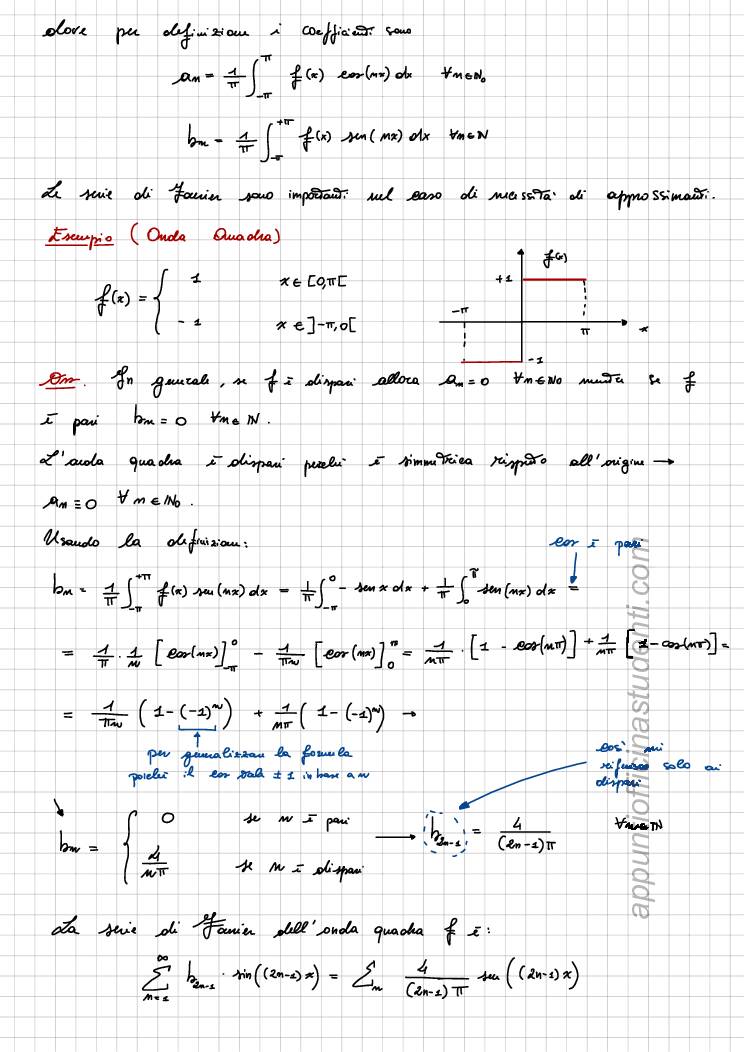 dove per definizione i coefficienti sono
an = 1/π ∫_{-π}^{π} f(x) cos(nx) dx ∀n∈N₀
bn = 1/π ∫_{-π}^{+π} f(x) sen(nx) dx ∀n∈N
Le serie di Fourier sono importanti nel caso di necessità di approssimanti.
Esempio (Onda Quadra)
f(x)
f(x) = { 1 x ∈ [0,π[
+1
-π π x
-1 x ∈ ]-π,0[
-1
Oss. In generale, se f è dispari allora an = 0 ∀n∈N₀ mentre se f
è pari bn = 0 ∀n∈N.
L'onda quadra è dispari perché è simmetrica rispetto all'origine →
an ≡ 0 ∀n∈N₀.
Usando la definizione:
cos è pari
bn = 1/π ∫_{-π}^{+π} f(x) sen(nx) dx = 1/π ∫_{-π}^{0} - sen x dx + 1/π ∫_{0}^{π} sen(nx) dx =
= 1/π · 1/n [cos(nx)]_{-π}^{0} - 1/πn [cos(nx)]_{0}^{π} = 1/nπ · [1 - cos(nπ)] + 1/nπ [1-cos(nπ)] =
= 1/πn (1-(-1)^n) + 1/nπ (1-(-1)^n) →
per generalizzare la formula
poiché il cos vale ±1 in base a n
così mi
riferisco solo ai
dispari
bn = { 0 se n è pari
4/nπ se n è dispari
→ b_{2n-1} = 4/((2n-1)π) ∀n∈N
La serie di Fourier dell'onda quadra f è:
∑_{n=1}^{∞} b_{2n-1} · sin((2n-1)x) = ∑_n 4/((2n-1)π) sen((2n-1)x)
appuntiofficinastudenti.com